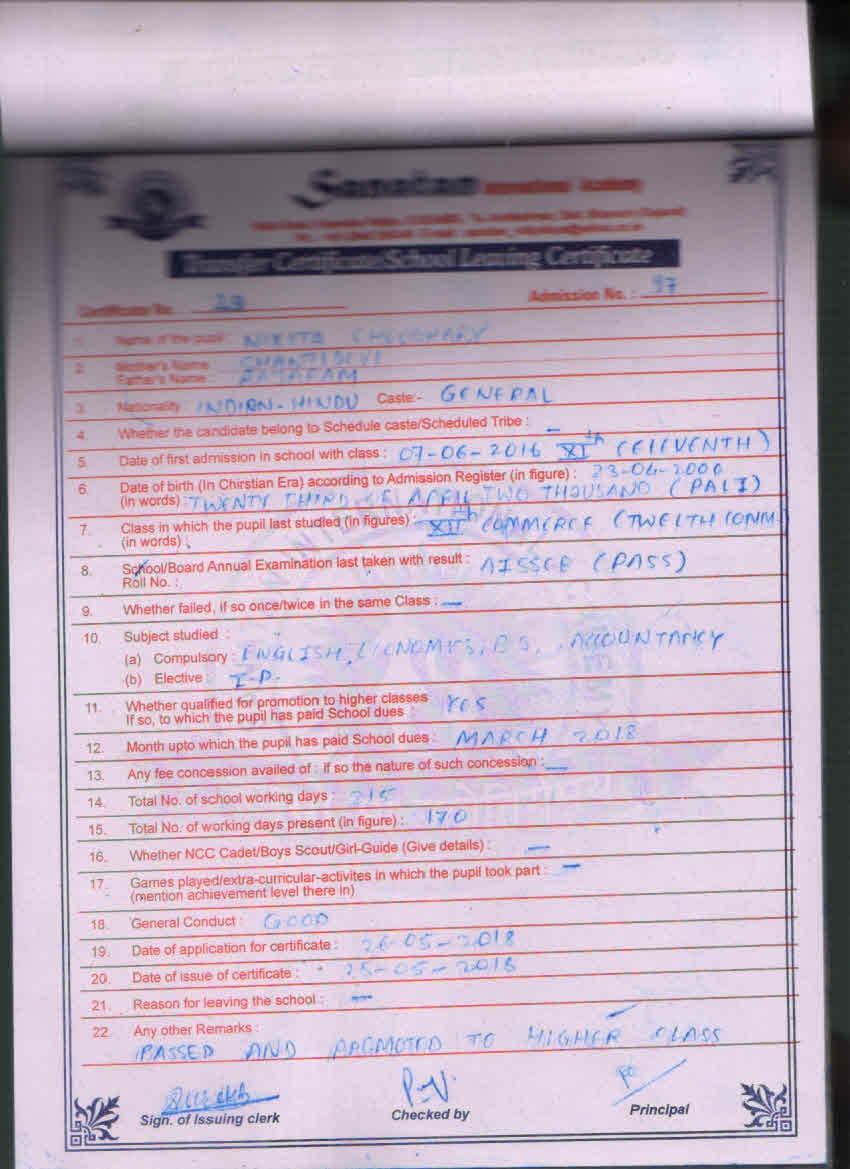 Sanatan International Academy
Transfer Certificate/School Leaving Certificate
Certificate No. 29 Admission No. : 97
1. Name of the pupil : NIKITA CHOUDHARY
2. Mother's Name : SHANTI DEVI
Father's Name : RAJARAM
3. Nationality : INDIAN-HINDU Caste:- GENERAL
4. Whether the candidate belong to Schedule caste/Scheduled Tribe : —
5. Date of first admission in school with class : 07-06-2016 XIth (ELEVENTH)
6. Date of birth (In Chirstian Era) according to Admission Register (in figure) : 23-04-2000
(in words) TWENTY THIRD OF APRIL TWO THOUSAND (PALI)
7. Class in which the pupil last studied (in figures) : XIIth COMMERCE (TWELTH COMM)
(in words) :
8. School/Board Annual Examination last taken with result : AISSCE (PASS)
Roll No. :
9. Whether failed, if so once/twice in the same Class : —
10. Subject studied :
(a) Compulsory : ENGLISH, ECONOMICS, B.S., ACCOUNTANCY
(b) Elective : I.P.
11. Whether qualified for promotion to higher classes YES
If so, to which the pupil has paid School dues
12. Month upto which the pupil has paid School dues : MARCH 2018
13. Any fee concession availed of : if so the nature of such concession : —
14. Total No. of school working days : 215
15. Total No. of working days present (in figure) : 170
16. Whether NCC Cadet/Boys Scout/Girl-Guide (Give details) : —
17. Games played/extra-curricular-activites in which the pupil took part : —
(mention achievement level there in)
18. General Conduct : GOOD
19. Date of application for certificate : 26-05-2018
20. Date of issue of certificate : 25-05-2018
21. Reason for leaving the school : —
22. Any other Remarks :
PASSED AND PROMOTED TO HIGHER CLASS
Sign. of Issuing clerk Checked by Principal